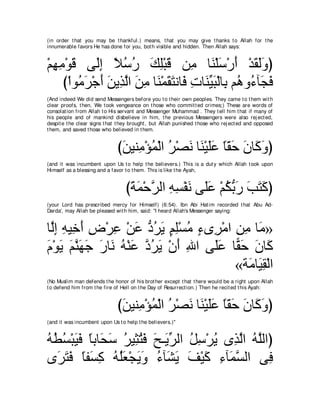 (in order that you may be thankful.) means, that you may give thanks to Allah for the
innumerable favors He has done for you, both visible and hidden. Then Allah says:
(وَلَقَدْ أَرْسَلْنَا مِن قَبْلِكَ رُسُلاً إِلَى قَوْمِهِمْ
فَجَآءُوهُم بِالْبَيِّنَاتِ فَانتَقَمْنَا مِنَ الَّذِينَ أَجْرَمُواْ)
(And indeed We did send Messengers before you to their own peoples. They came to them with
clear proofs, then, We took vengeance on those who committed crimes;) These are words of
consolation from Allah to His servant and Messenger Muhammad . They tell him that if many of
his people and of mankind disbelieve in him, the previous Messengers were also rejected,
despite the clear signs that they brought, but Allah punished those who rejected and opposed
them, and saved those who believed in them.
(وَكَانَ حَقّاً عَلَيْنَا نَصْرُ الْمُؤْمِنِينَ)
(and it was incumbent upon Us to help the believers.) This is a duty which Allah took upon
Himself as a blessing and a favor to them. This is like the Ayah,
(كَتَبَ رَبُّكُمْ عَلَى نَفْسِهِ الرَّحْمَةَ)
(your Lord has prescribed mercy for Himself) (6:54). Ibn Abi Hatim recorded that Abu Ad-
Darda', may Allah be pleased with him, said: "I heard Allah's Messenger saying:
«مَا مِنِ امْرِىءٍ مُسْلِمٍ يَرُدُّ عَنْ عِرْضِ أَخِيهِ إِلَّا
كَانَ حَقًّا عَلَى اللهِ أَنْ يَرُدَّ عَنْهُ نَارَ جَهَنَّمَ يَوْمَ
الْقِيَامَة»
(No Muslim man defends the honor of his brother except that there would be a right upon Allah
to defend him from the fire of Hell on the Day of Resurrection.) Then he recited this Ayah:
(وَكَانَ حَقّاً عَلَيْنَا نَصْرُ الْمُؤْمِنِينَ)
(and it was incumbent upon Us to help the believers.)"
(اللَّهُ الَّذِى يُرْسِلُ الرِّيَـحَ فَتُثِيرُ سَحَاباً فَيَبْسُطُهُ
فِى السَّمَآءِ كَيْفَ يَشَآءُ وَيَجْعَلُهُ كِسَفاً فَتَرَى